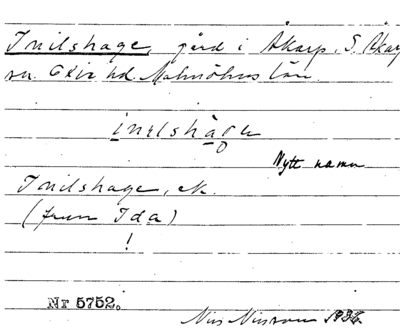 Inilshage, gård i Åkarp, S. Åkarp
sn. Oxie hd. Malmöhus län.
inelshāga
Nytt namn
Inilshage, ek.
(frun Ida)
!
Nr 5752.
Nils Nilsson 1936.